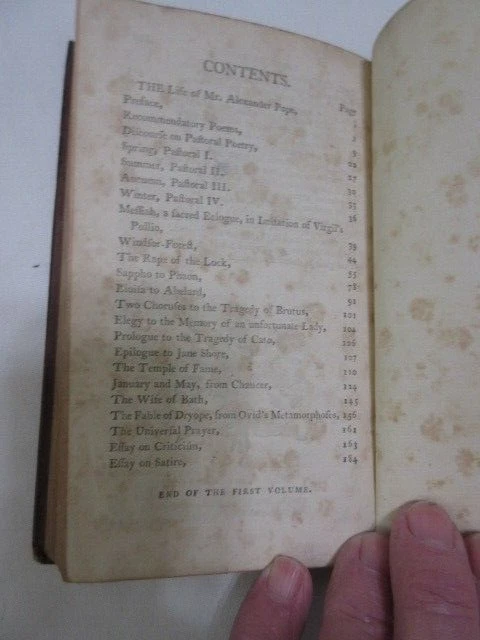 CONTENTS.
Page
THE Life of Mr. Alexander Pope,
Preface, 2
Recommendatory Poems, 9
Discourse on Pastoral Poetry, 22
Spring, Pastoral I. 27
Summer, Pastoral II.
Autumn, Pastoral III. 33
Winter, Pastoral IV. 36
Messiah, a sacred Eclogue, in Imitation of Virgil's
Pollio, 39
Windsor-Forest, 44
The Rape of the Lock, 55
Sappho to Phaon, 78
Eloisa to Abelard, 91
Two Choruses to the Tragedy of Brutus, 101
Elegy to the Memory of an unfortunate Lady, 104
Prologue to the Tragedy of Cato, 106
Epilogue to Jane Shore, 107
The Temple of Fame, 110
January and May, from Chaucer, 124
The Wife of Bath, 145
The Fable of Dryope, from Ovid's Metamorphoses, 156
The Universal Prayer, 161
Essay on Criticism, 163
Essay on Satire, 184
END OF THE FIRST VOLUME.